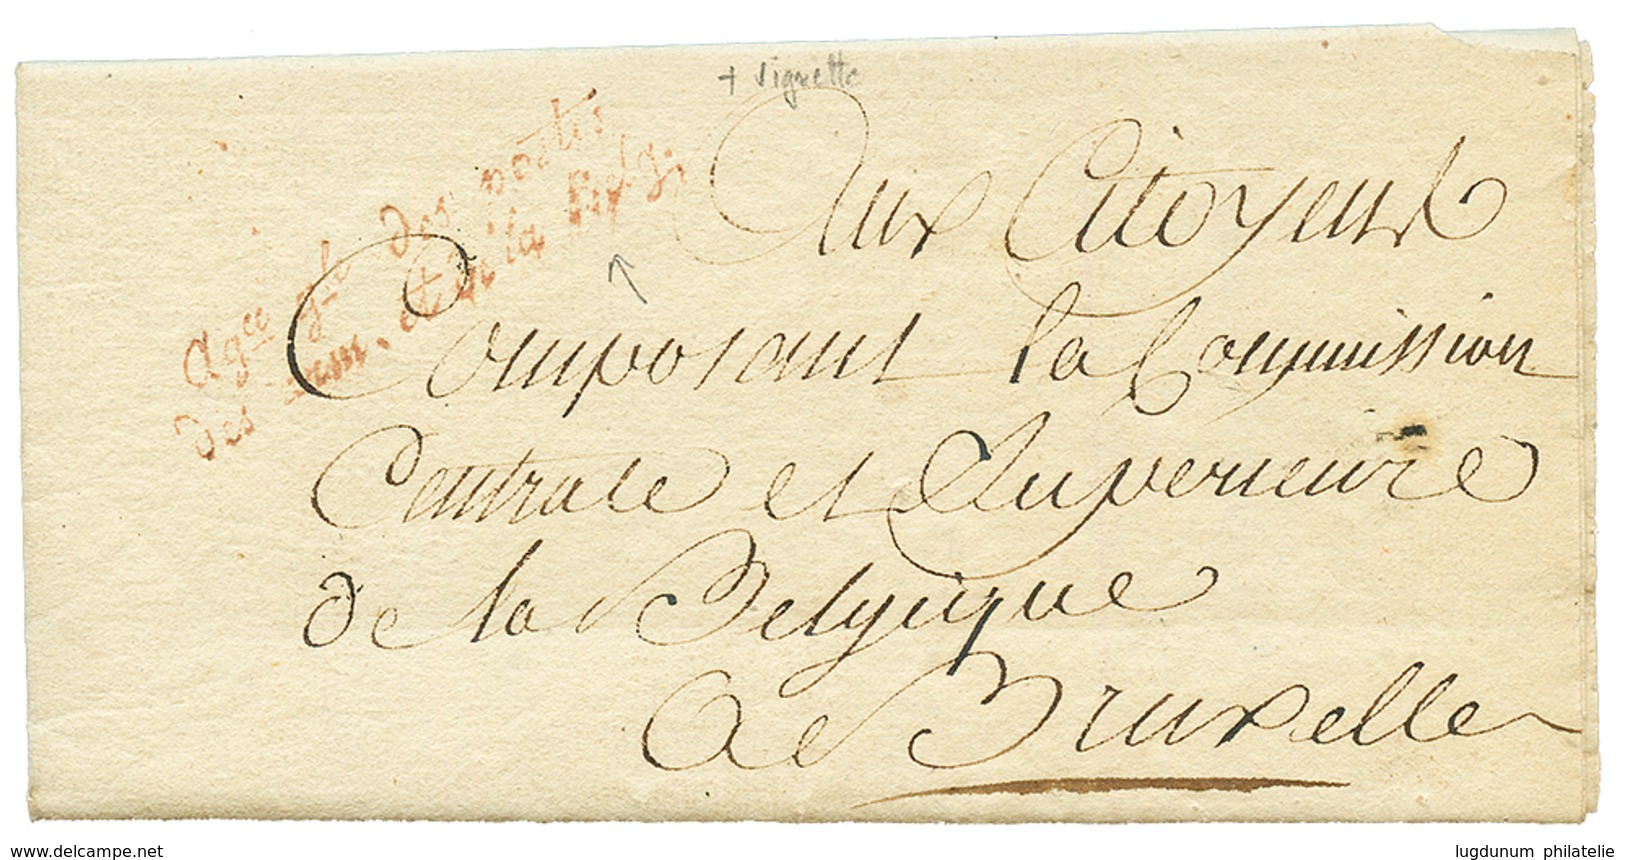 + vignette
agce gle des postes
des arm. et de la Belg.
Aux Citoyens
Composant la Commission
Centrale et Superieure
de la Belgique
A Bruxelles
www.delcampe.net
lugdunum philatelie